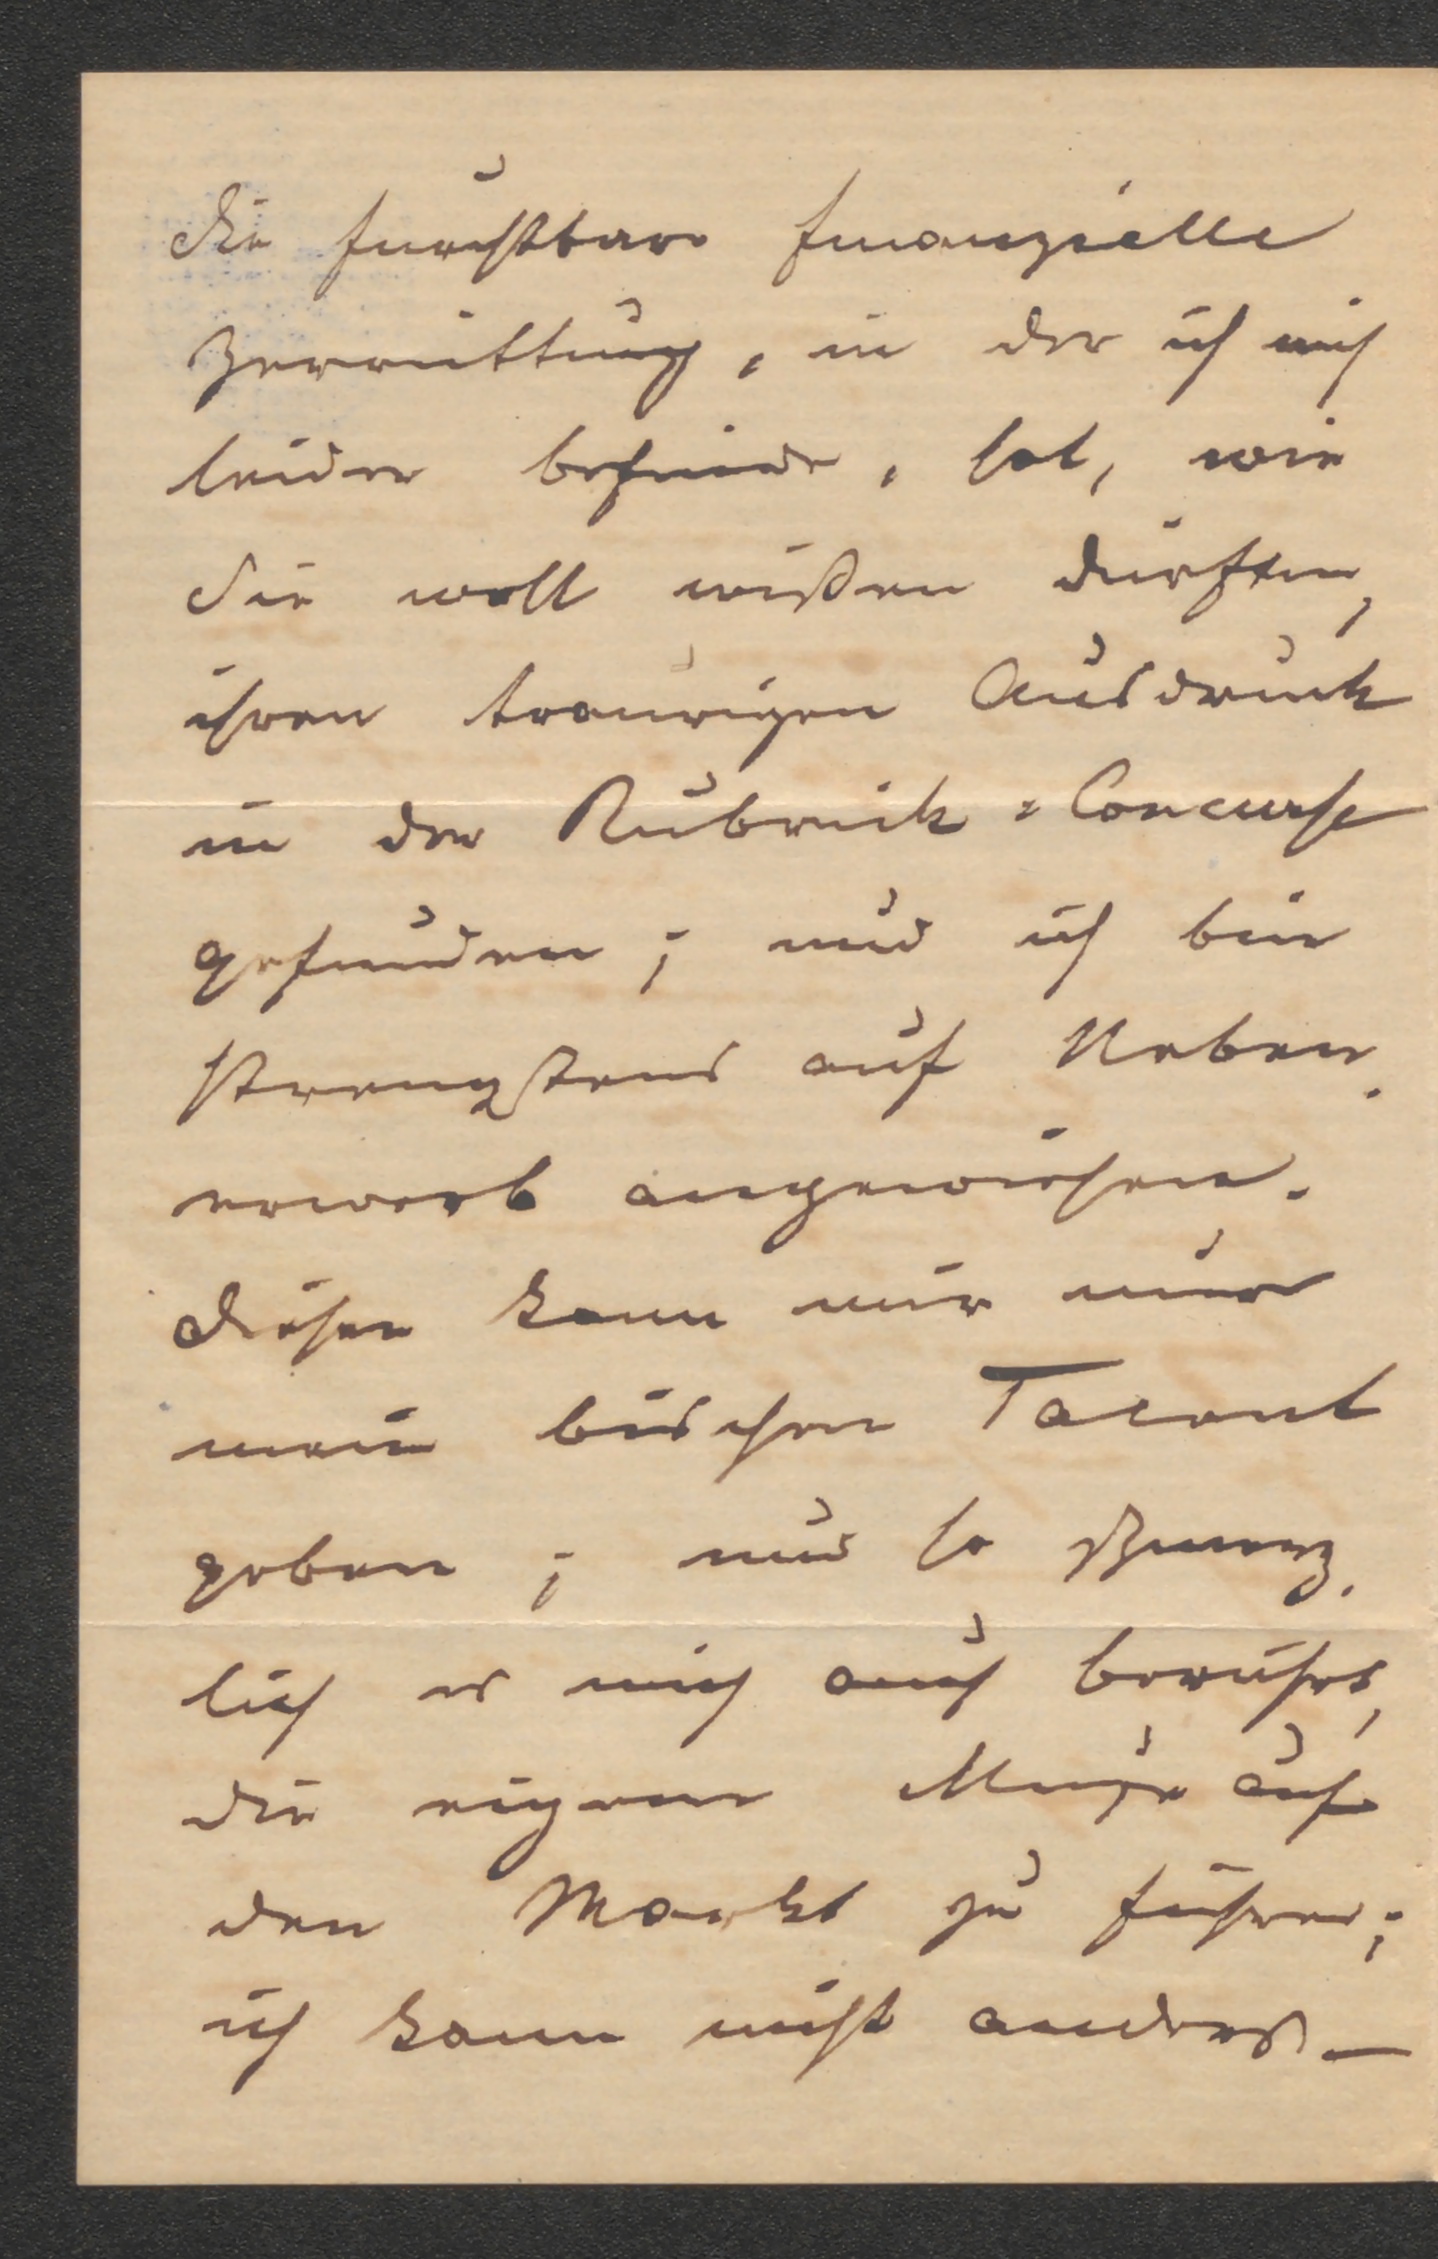 Die furchtbare finanzielle
Zerrüttung, in der ich mich
leider befinde, hat, wie
Sie wohl wißen dürften,
ihren traurigen Ausdruck
in der Rubrik: Concurse
gefunden; und ich bin
strengstens auf Neben-
erwerb angewiesen.
Diesen kann mir nur
mein bischen Talent
geben; und so schmerz-
lich es mich auch berührt,
die eigene Muse auf
den Markt zu führen;
ich kann nicht anders –